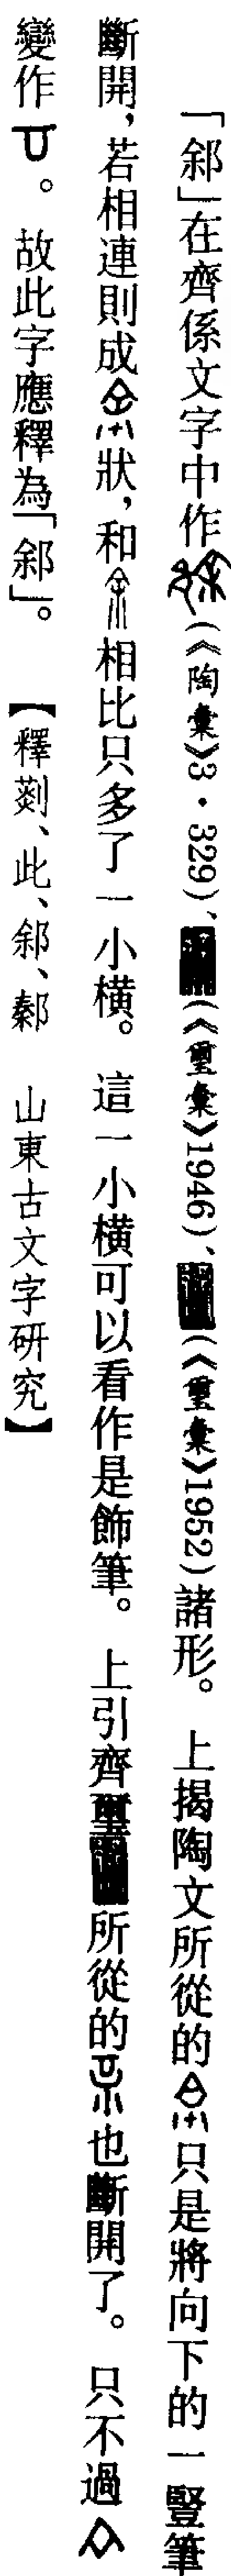 「䣄」在齊係文字中作(《陶彙》3·329)、(《璽彙》1946)、(《璽彙》1952)諸形。上揭陶文所從的只是將向下的一豎筆
斷開,若相連則成狀,和相比只多了一小橫。這一小橫可以看作是飾筆。上引齊璽所從的也斷開了。只不過
變作。故此字應釋為「䣄」。【釋䓶、此、䣄、鄡 山東古文字研究】